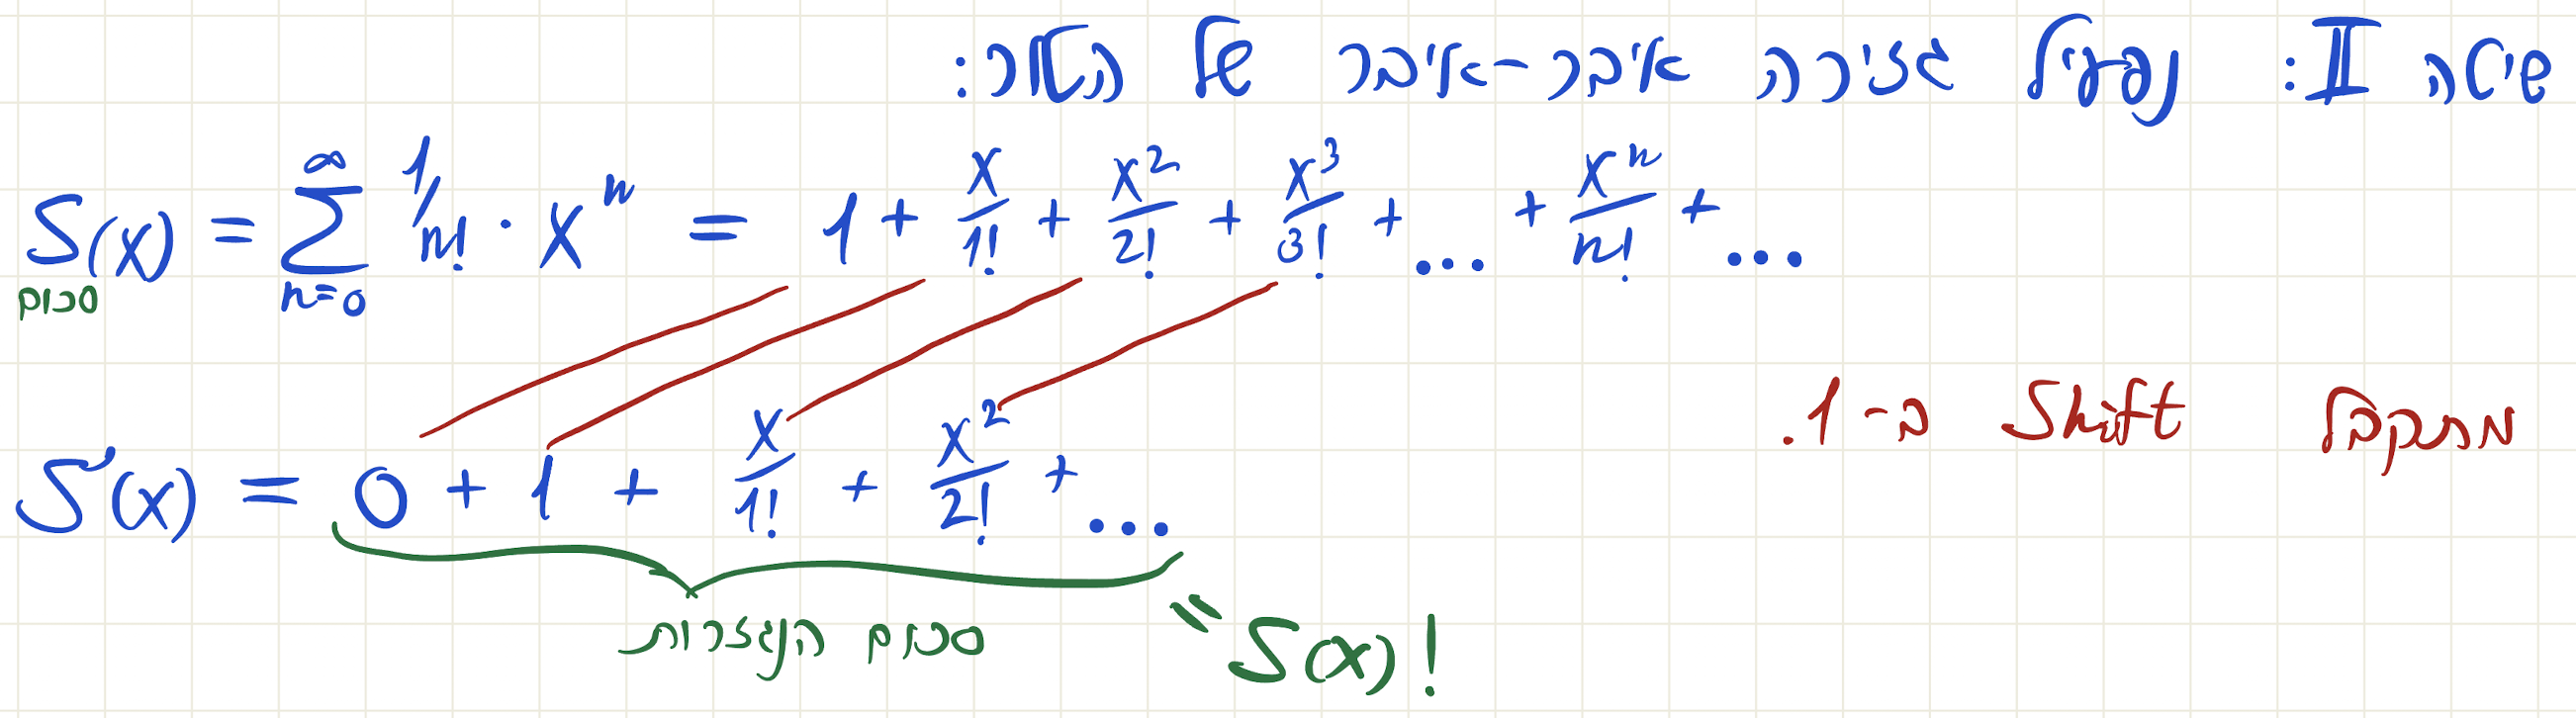 שיטה II: נפעיל גזירה איבר-איבר של הטור:
S(x) = ∑_{n=0}^{∞} 1/n! · x^n = 1 + x/1! + x^2/2! + x^3/3! + ... + x^n/n! + ...
סכום
מתקבל Shift ב-1.
S'(x) = 0 + 1 + x/1! + x^2/2! + ...
סכום הנגזרות
= S(x)!